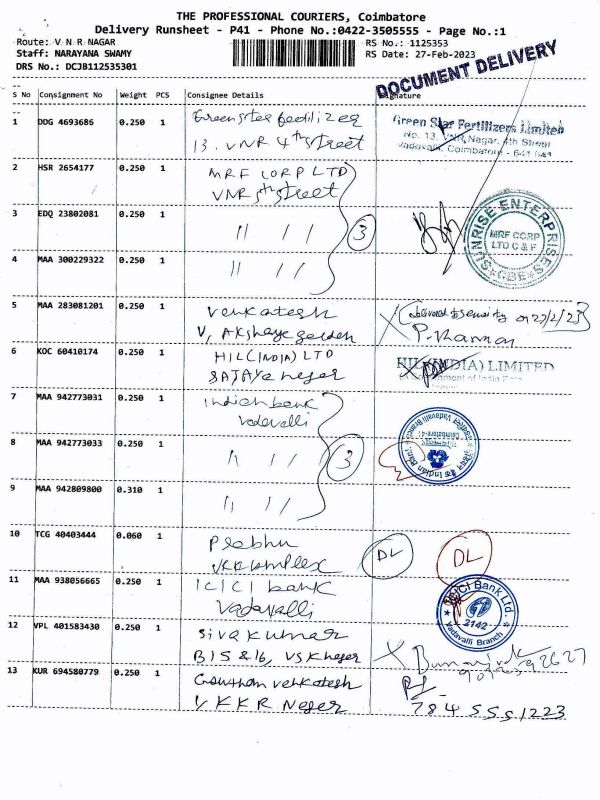 THE PROFESSIONAL COURIERS, Coimbatore
Delivery Runsheet - P41 - Phone No.:0422-3505555 - Page No.:1
Route: V N R NAGAR RS No.: 1125353
Staff: NARAYANA SWAMY RS Date: 27-Feb-2023
DRS No.: DCJB112535301
DOCUMENT DELIVERY
S No Consignment No Weight PCS Consignee Details Signature
1 DDG 4693686 0.250 1 Greenster fertilizer
13. VNR 4th street
Green Star Fertilizers Limited
No. 13, VNR Nagar, 4th Street
Vadavalli, Coimbatore - 641 041
2 HSR 2654177 0.250 1 MRF CORP LTD
VNR 5th street
3 EDQ 23802081 0.250 1 11 11 3
SUNRISE ENTERPRISES
MRF CORP
LTD C & F
CBE
4 MAA 300229322 0.250 1 11 11
5 MAA 283081201 0.250 1 Venkatesh
V, Akshaye garden
delivered to security on 27/2/23
P. Kannan
6 KOC 60410174 0.250 1 HIL(INDIA) LTD
SAJAYA neger
HIL(INDIA) LIMITED
7 MAA 942773031 0.250 1 Indian bank
vadavalli
8 MAA 942773033 0.250 1 11 11 3
9 MAA 942809800 0.310 1 11 11
10 TCG 40403444 0.060 1 Prabhu
VKR complex
DL DL
11 MAA 938056665 0.250 1 ICICI bank
Vadavalli
ICICI Bank Ltd.
2142
Vadavalli Branch
12 VPL 401583430 0.250 1 Siva kumar
B15 & 16, VSK neger
13 KUR 694580779 0.250 1 Gowtham venkatesh
1/ KKR Neger
784 555 1223